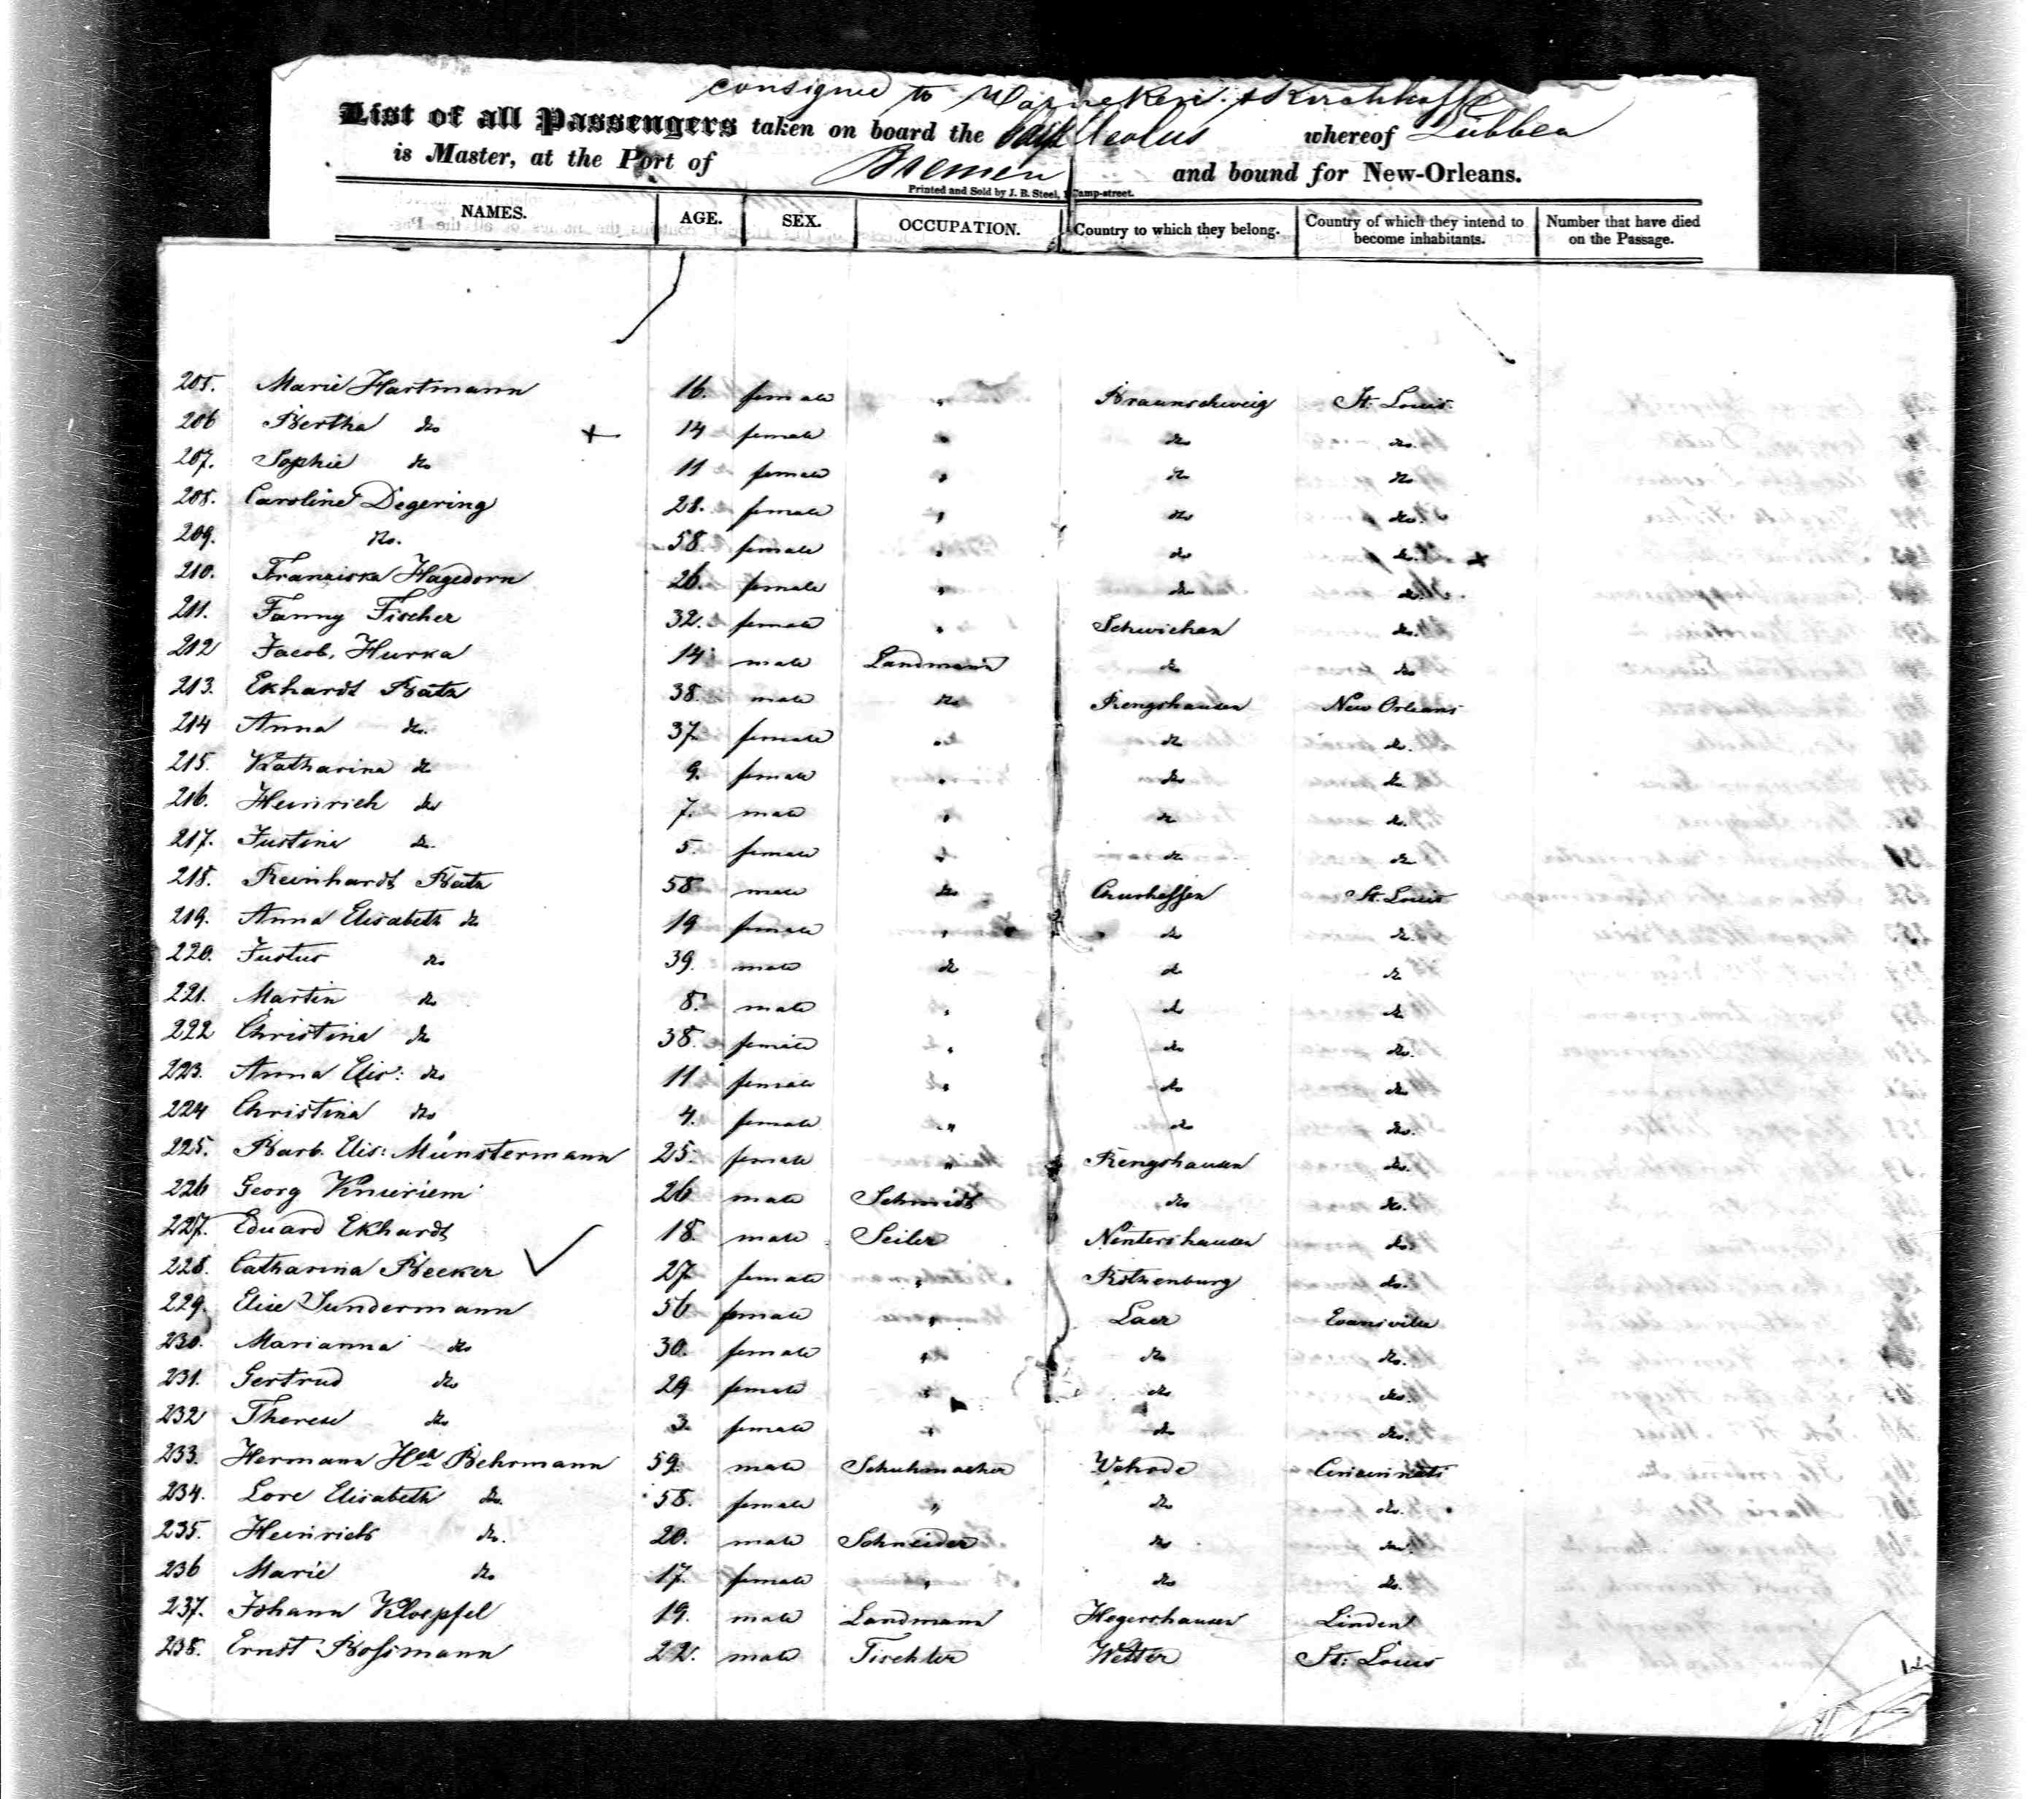 consigned to Warneken & Kirchhoff
List of all Passengers taken on board the Ship Aeolus whereof Lübben
is Master, at the Port of Bremen and bound for New-Orleans.
Printed and Sold by J. B. Steel, Camp-street.
NAMES. AGE. SEX. OCCUPATION. Country to which they belong. Country of which they intend to become inhabitants. Number that have died on the Passage.
205. Marie Hartmann 16. female " Braunschweig St. Louis.
206 Bertha do + 14 female " do do.
207. Sophie do 11 female " do do
208. Caroline Degering 28. female " do do.
209. do. 58. female " do do. +
210. Franziska Hagedorn 26. female " do do.
211. Fanny Fischer 32. female " Schwichan do.
212 Jacob Hurka 14 male Landmann do do
213. Ekhardt Batz 38. male do Rengshausen New Orleans
214 Anna do. 37. female " do do.
215. Katharina do 9. female " do do
216. Heinrich do 7. male " do do.
217. Justine do. 5. female " do do
218. Reinhardt Batz 58 male do Churhessen St. Louis
219. Anna Elisabeth do 19 female " do do.
220. Justus do 39. male do do do
221. Martin do 8. male " do do
222 Christina do 38. female " do do.
223. Anna Elis: do 11 female " do do
224 Christina do 4. female " do do.
225. Barb. Elis: Münstermann 25. female " Rengshausen do.
226 Georg Knieriem 26 male Schmidt do do.
227. Eduard Ekhardt 18. male Seiler Nentershausen do
228. Catharina Becker ✓ 27 female " Rothenburg do.
229. Elise Sundermann 56 female " Laer Evansville
230. Marianna do 30. female " do do.
231. Gertrud do 29 female " do do.
232 Therese do 3. female " do do.
233. Hermann Hch Behrmann 59. male Schuhmacher Wehrde Cincinnati
234. Lore Elisabeth do. 58. female " do do.
235. Heinrich do. 20. male Schneider do do.
236 Marie do 17. female " do do.
237. Johann Kloepfel 19. male Landmann Hegershausen Linden
238. Ernst Bossmann 22. male Tischler Wetter St. Louis